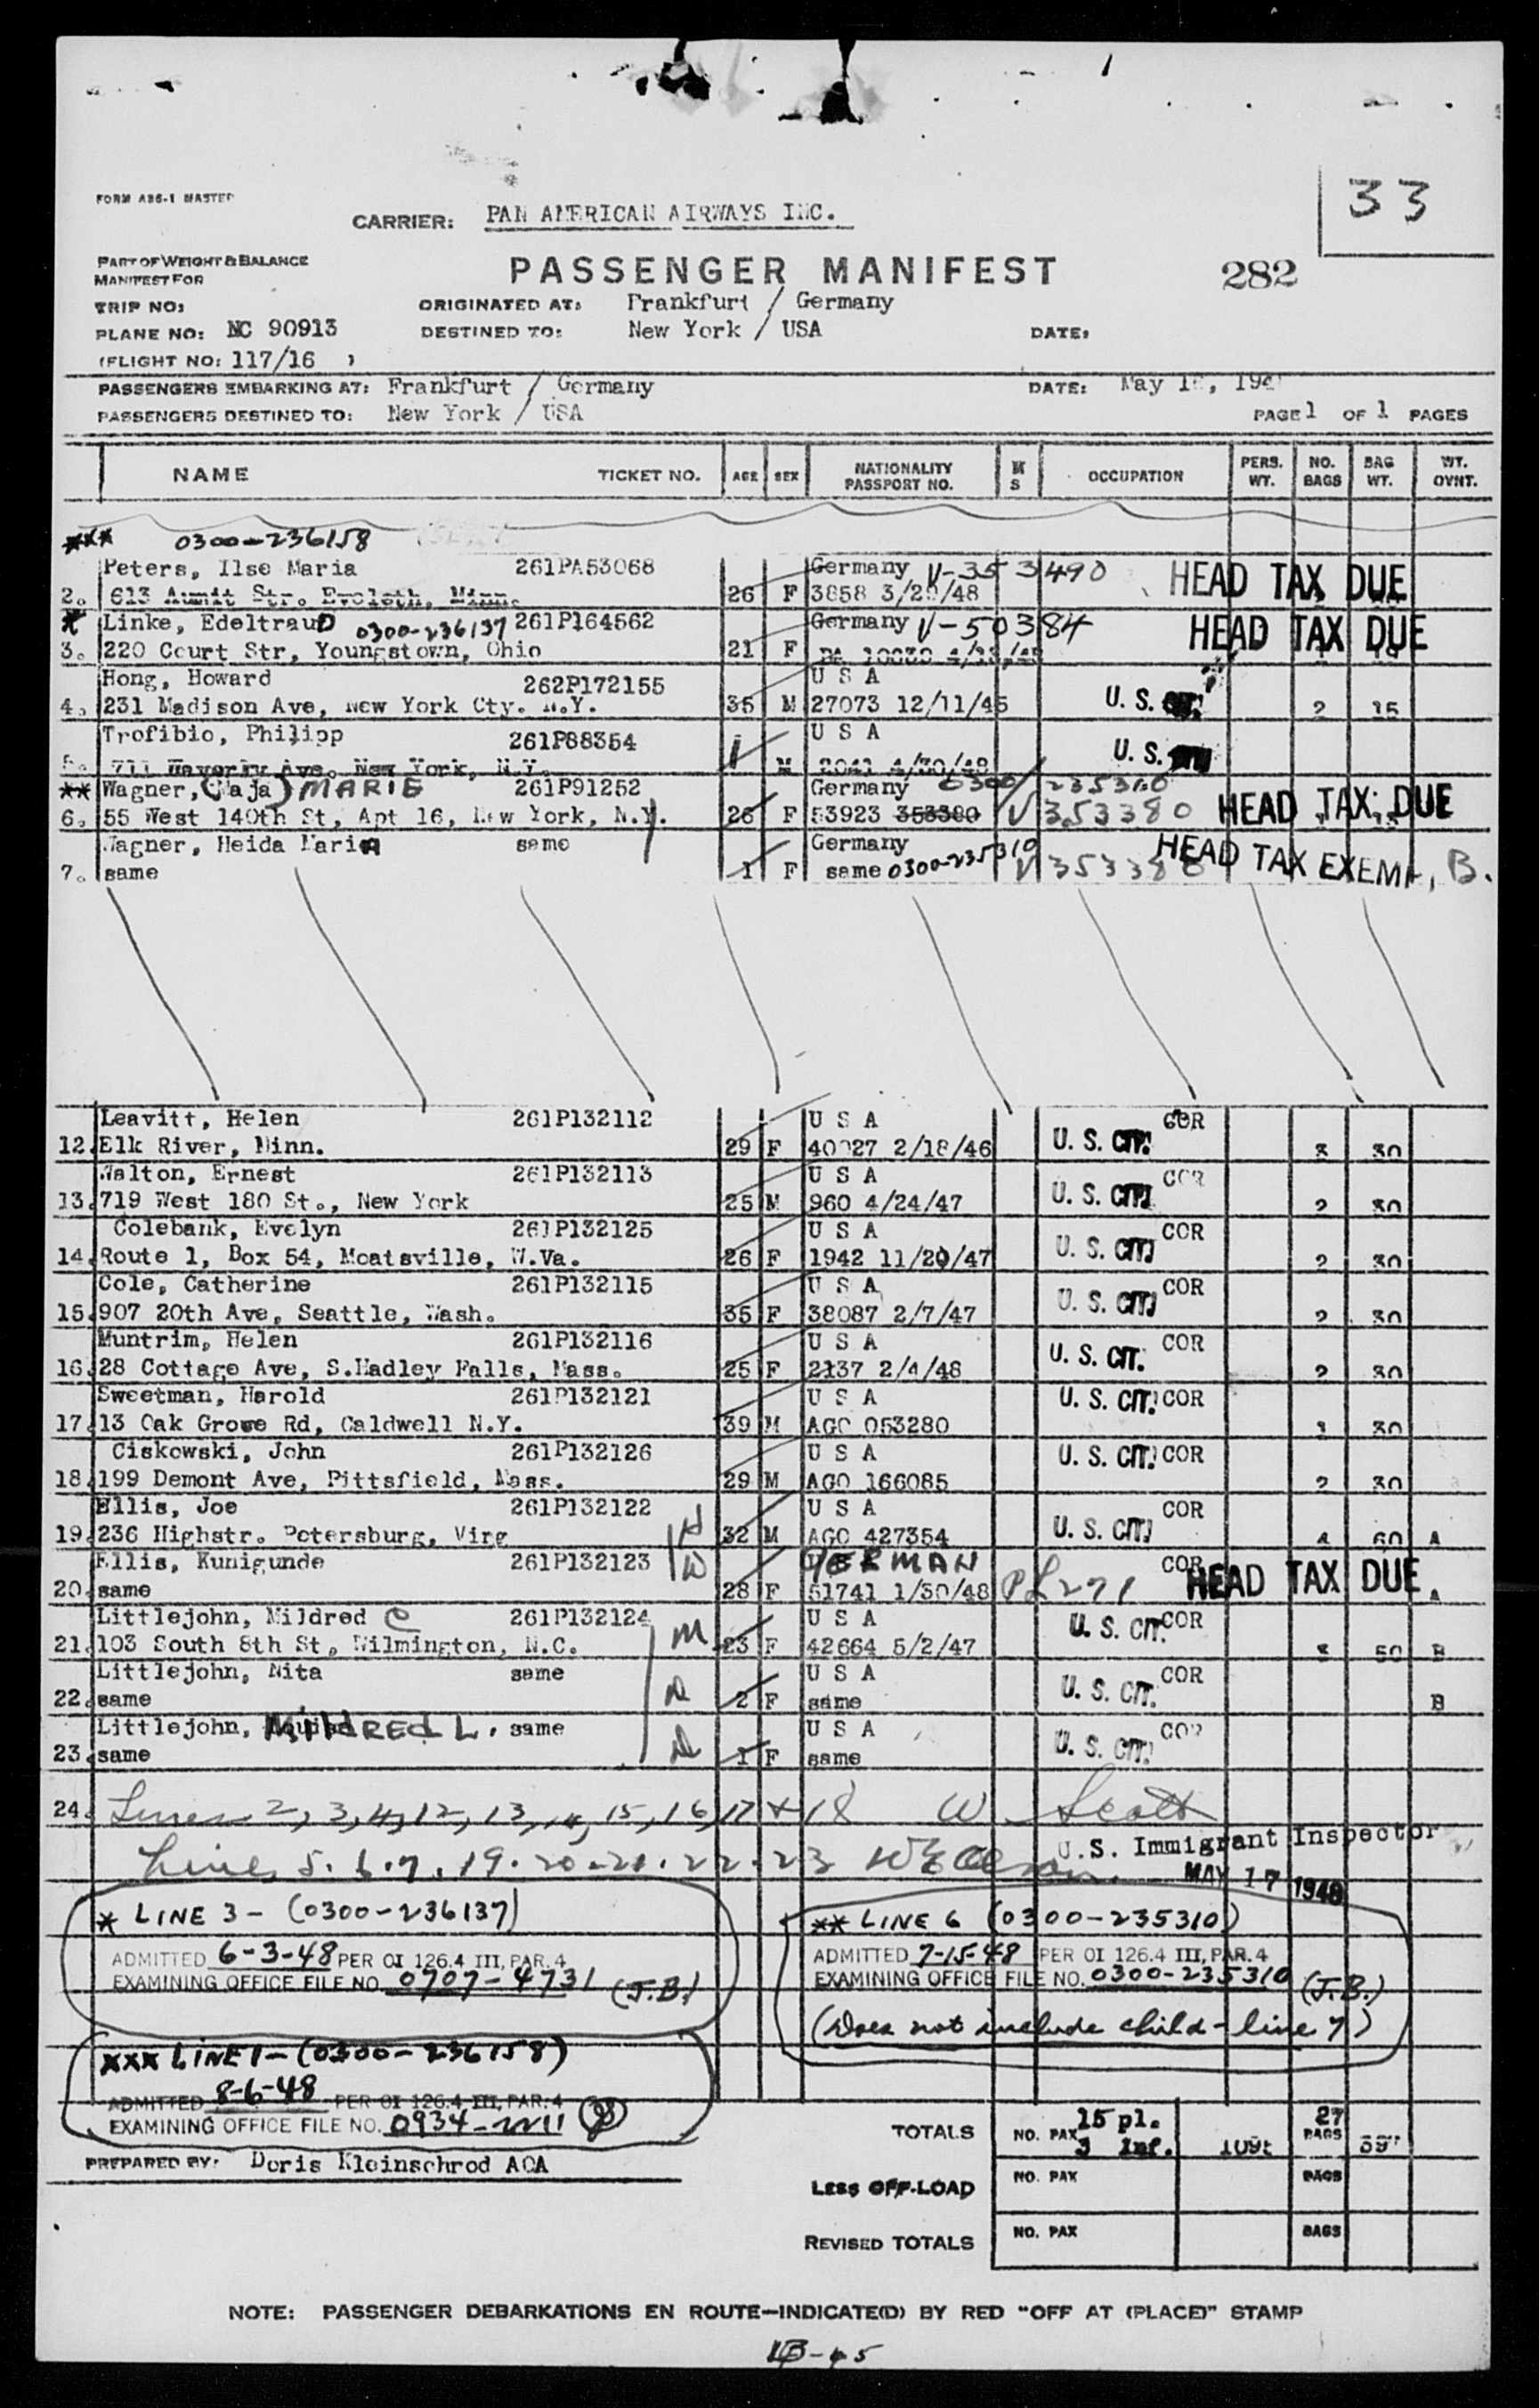 33
FORM A86-1 MASTER
CARRIER: PAN AMERICAN AIRWAYS INC.
PART OF WEIGHT & BALANCE
MANIFEST FOR
PASSENGER MANIFEST 282
TRIP NO: ORIGINATED AT: Frankfurt / Germany
PLANE NO: NC 90913 DESTINED TO: New York / USA DATE:
(FLIGHT NO: 117/16 )
PASSENGERS EMBARKING AT: Frankfurt / Germany DATE: May
PASSENGERS DESTINED TO: New York / USA PAGE 1 OF 1 PAGES
NAME TICKET NO. AGE SEX NATIONALITY PASSPORT NO. M S OCCUPATION PERS. WT. NO. BAGS BAG WT. WT. OVNT.
*** 0300-236158
Peters, Ilse Maria 261PA53068 Germany V-353490 HEAD TAX DUE
2. 613 Str. Eveleth, Minn. 26 F 3858 48
* Linke, EdeltrauD 0300-236137 261P164562 Germany V-50384 HEAD TAX DUE
3. 220 Court Str, Youngstown, Ohio 21 F
Hong, Howard 262P172155 U S A
4. 231 Madison Ave, New York Cty. N.Y. 35 M 27073 12/11/45 U. S. CIT. 2 15
Trofibio, Philipp 261P88354 U S A
5. 711 Waverly Ave. New York, N.Y. M 2041 4/30/48 U. S.
** Wagner, (Maja) MARIE 261P91252 Germany 0300/235310
6. 55 West 140th St, Apt 16, New York, N.Y. 26 F 53923 353380 V 353380 HEAD TAX DUE
Wagner, Heida Maria same Germany
7. same 1 F same 0300-235310 V 353380 HEAD TAX EXEMPT, B.
Leavitt, Helen 261P132112 U S A COR
12. Elk River, Minn. 29 F 40027 2/18/46 U. S. CIT. 3 30
Walton, Ernest 261P132113 U S A COR
13. 719 West 180 St., New York 25 M 960 4/24/47 U. S. CIT. 2 30
Colebank, Evelyn 261P132125 U S A COR
14. Route 1, Box 54, Moatsville, W.Va. 26 F 1942 11/20/47 U. S. CIT. 2 30
Cole, Catherine 261P132115 U S A COR
15. 907 20th Ave, Seattle, Wash. 35 F 38087 2/7/47 U. S. CIT. 2 30
Muntrim, Helen 261P132116 U S A COR
16. 28 Cottage Ave, S.Hadley Falls, Mass. 25 F 2137 2/4/48 U. S. CIT. 2 30
Sweetman, Harold 261P132121 U S A U. S. CIT. COR
17. 13 Oak Grove Rd, Caldwell N.Y. 39 M AGO 053280 30
Ciskowski, John 261P132126 U S A U. S. CIT. COR
18. 199 Demont Ave, Pittsfield, Mass. 29 M AGO 166085 2 30
Ellis, Joe 261P132122 U S A COR
19. 236 Highstr. Petersburg, Virg H 32 M AGO 427354 U. S. CIT. 4 60 A
Ellis, Kunigunde 261P132123 W GERMAN COR
20. same 28 F 51741 1/30/48 PL271 HEAD TAX DUE A
Littlejohn, Mildred C 261P132124 U S A COR
21. 103 South 8th St, Wilmington, N.C. M 23 F 42664 5/2/47 U. S. CIT. 50 B
Littlejohn, Nita same U S A COR
22. same D 2 F same U. S. CIT. B
Littlejohn, MILDRED L. same U S A COR
23. same D 1 F same U. S. CIT.
24. Lines 2, 3, 4, 12, 13, 14, 15, 16, 17 + 18 W Scott
U.S. Immigrant Inspector
Lines 5. 6. 7. 19. 20. 21. 22. 23
MAY 17 1948
* LINE 3 - (0300-236137)
ADMITTED 6-3-48 PER OI 126.4 III, PAR. 4
EXAMINING OFFICE FILE NO. 0707-4731 (J.B.)
** LINE 6 (0300-235310)
ADMITTED 7-15-48 PER OI 126.4 III, PAR. 4
EXAMINING OFFICE FILE NO. 0300-235310 (J.B.)
(Does not include child - line 7)
*** LINE 1 - (0300-236158)
ADMITTED 8-6-48 PER OI 126.4 III, PAR. 4
EXAMINING OFFICE FILE NO. 0934-2211
PREPARED BY: Doris Kleinschrod ACA
TOTALS NO. PAX 15 pl. 3 Inf. 27 BAGS
LESS OFF-LOAD NO. PAX BAGS
REVISED TOTALS NO. PAX BAGS
NOTE: PASSENGER DEBARKATIONS EN ROUTE—INDICATE(D) BY RED "OFF AT (PLACE)" STAMP